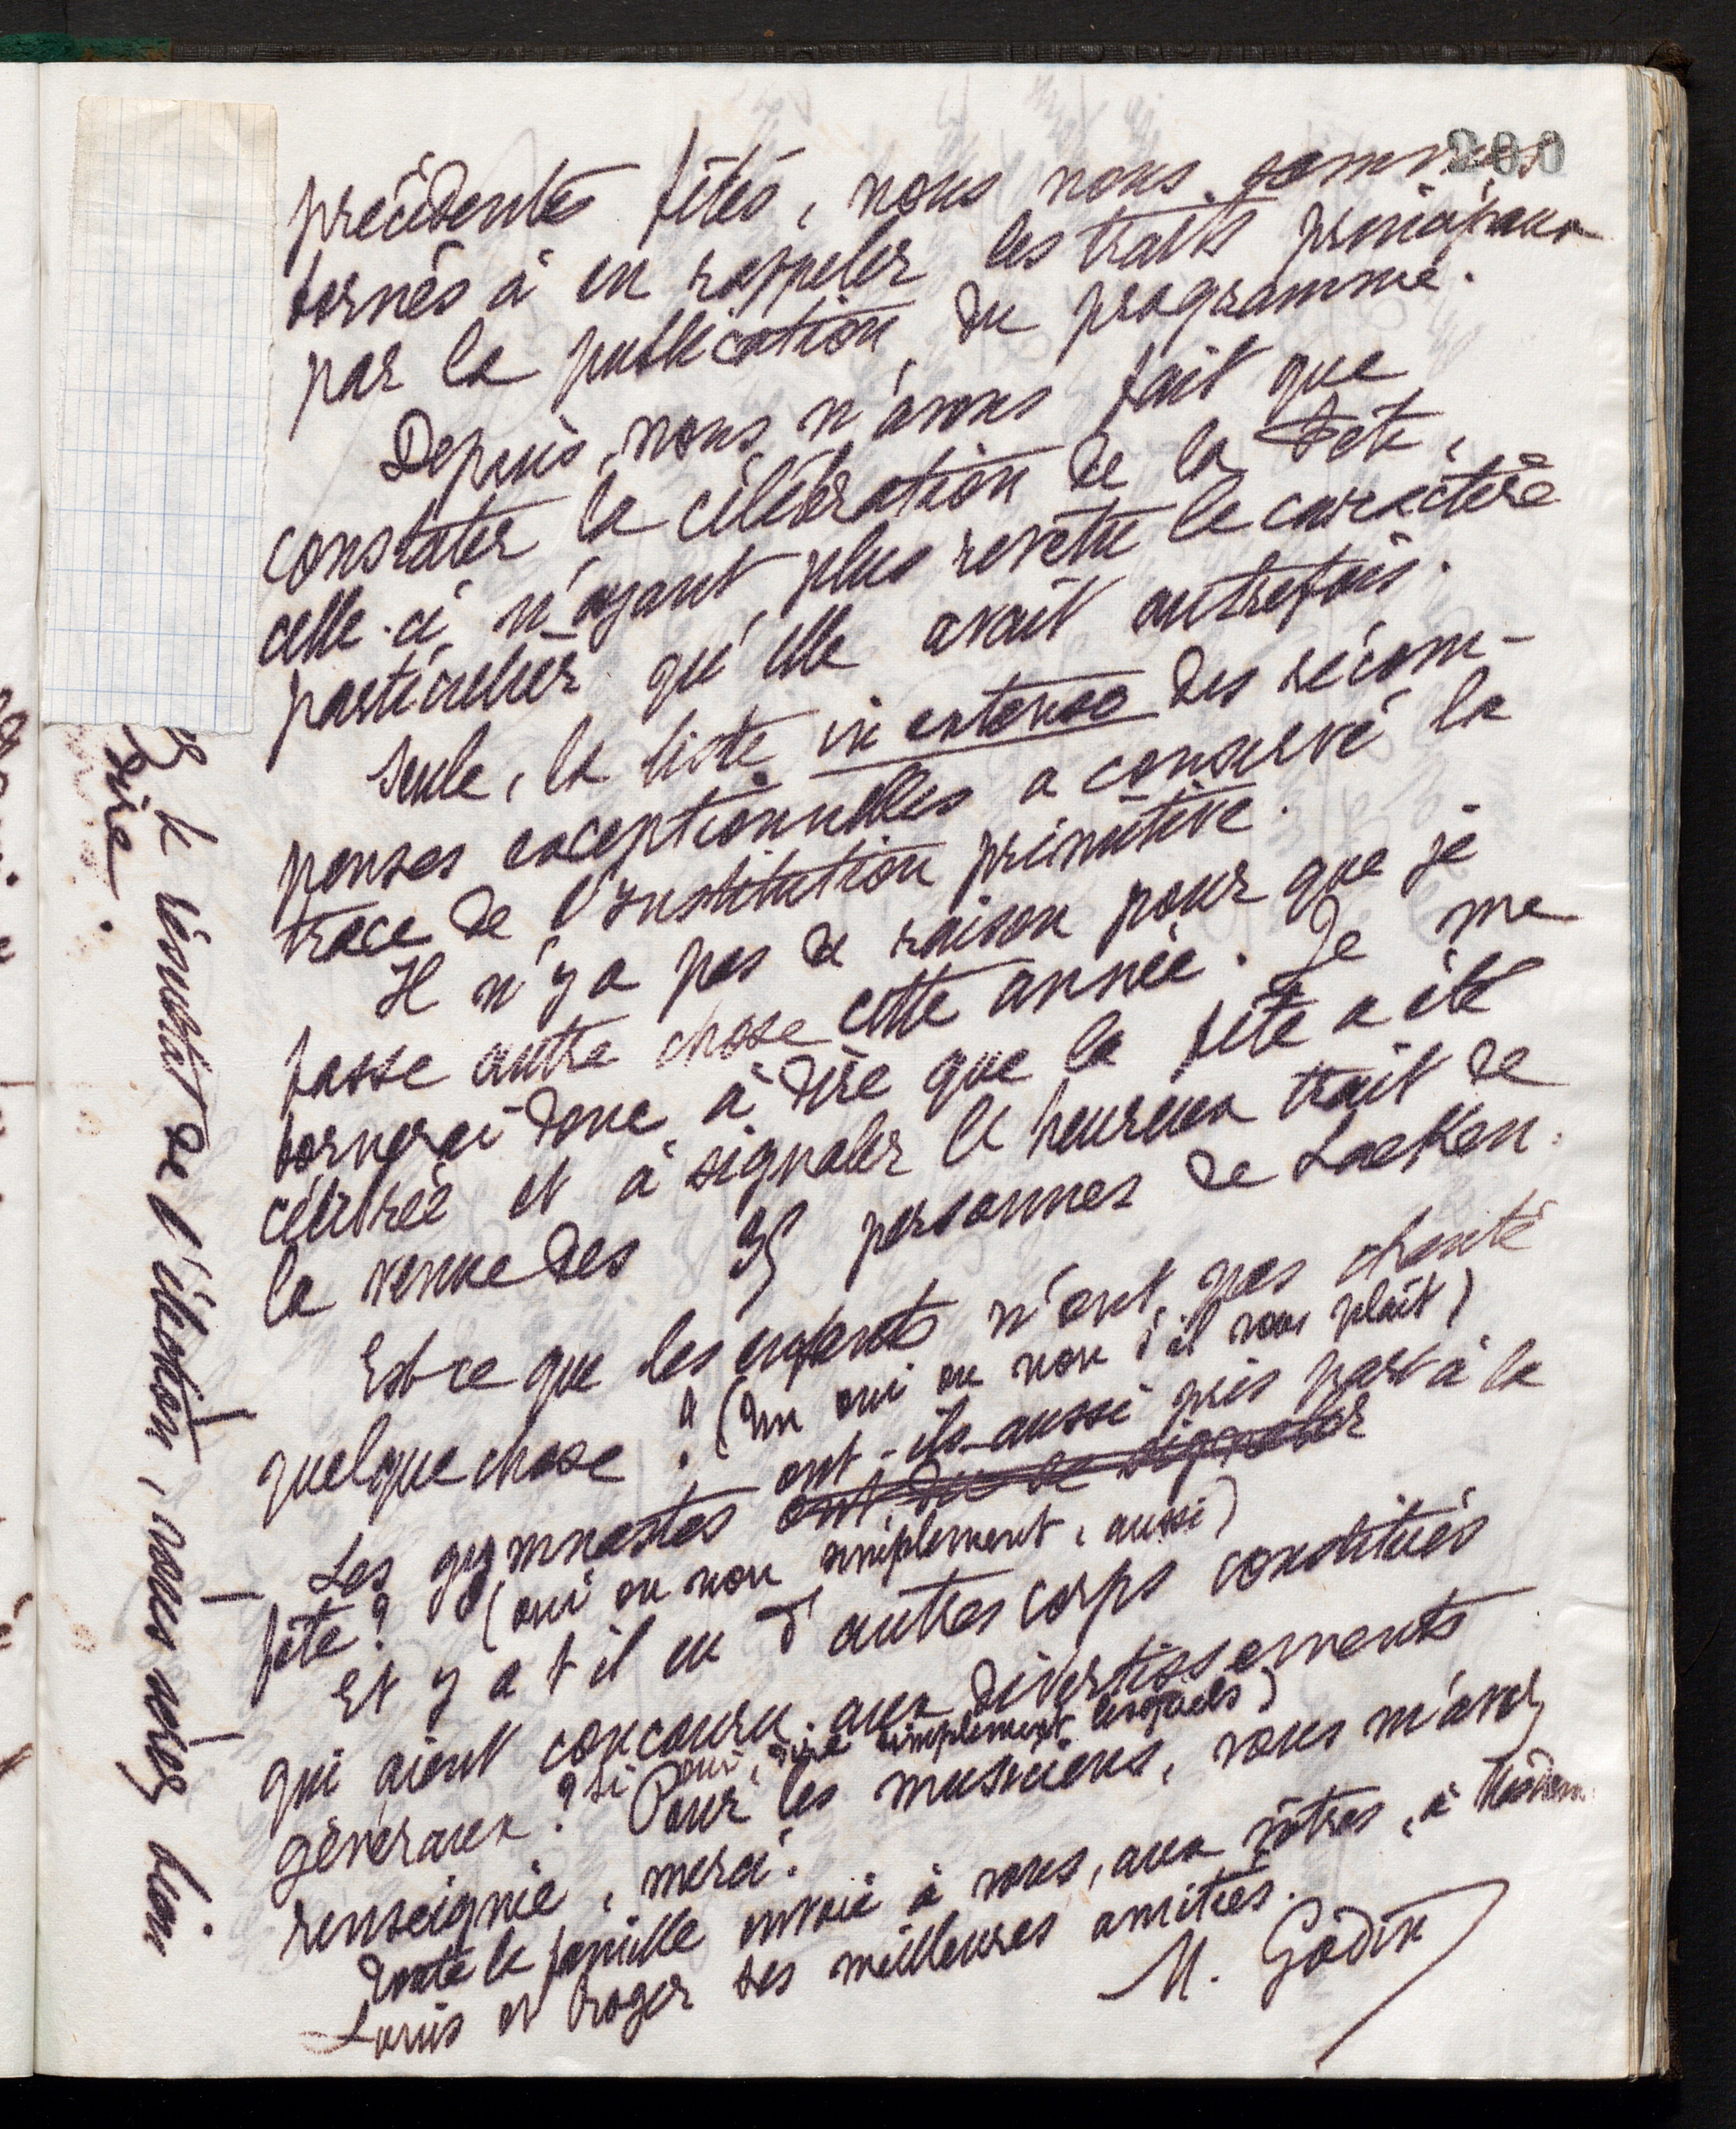 200
précédentes fêtes, nous nous sommes
bornés à en rappeler les traits principaux
par la publication du programme.
Depuis, nous n'avons fait que
constater la célébration de la Fête,
celle-ci n'ayant plus revêtu le caractère
particulier qu'elle avait autrefois.
Seule, la liste in extenso des récom-
penses exceptionnelles a conservé la
trace de l'Institution primitive.
Il n'y a pas de raison pour que je
fasse autre chose cette année. Je me
bornerai donc à dire que la fête a été
célébrée et à signaler le heureux trait de
la venue des 35 personnes de Laeken.
Est-ce que les enfants n'ont pas chanté
quelque chose ? (Un oui ou non s'il vous plait)
Les gymnastes ont-ils aussi pris part à la
ont dû se signaler
fête ? (oui ou non simplement, aussi)
Et y a t il eu d'autres corps constitués
qui aient concouru aux divertissements
généraux ? Si oui, dire simplement lesquels)
Pour les musiciens, vous m'avez
renseignée, merci.
Toute la famille envoie à vous, aux vôtres, à Madame
Louis et Roger ses meilleures amitiés.
M. Godin
Et le résultat de l'élection, vous nous bien
dire.